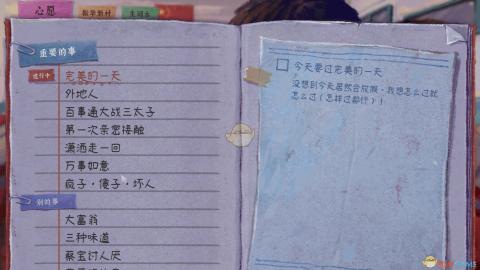 心愿
生词本
重要的事
进行中
完美的一天
外地人
百事通大战三太子
第一次亲密接触
潇洒走一回
万事如意
疯子·傻子·坏人
别的事
大富翁
三种味道
蔡宝讨人厌
今天要过完美的一天
没想到今天居然会放假，我想怎么过就
怎么过（怎样过都行）！